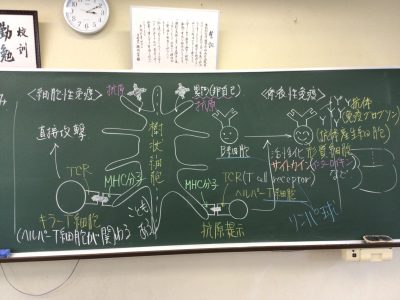 校訓
勤勉
<細胞性免疫>
抗原
異物(非自己)
抗原
<体液性免疫>
抗体
(免疫グロブリン)
直接攻撃
樹状細胞
B細胞
(抗体産生細胞)
形質細胞
活性化
サイトカイン
など
TCR
MHC分子
MHC分子
TCR(T cell receptor)
ヘルパーT細胞
キラーT細胞
(ヘルパーT細胞が関わる
ことも
ある)
抗原提示
リンパ球